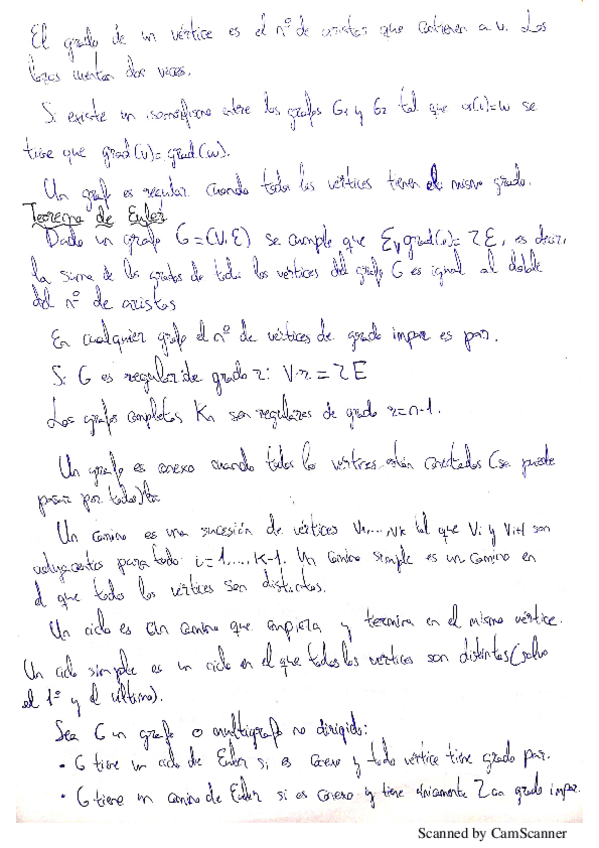 El grado de un vértice es el nº de aristas que contienen a v. Los
lazos cuentan dos veces.
Si existe un isomorfismo entre los grafos G1 y G2 tal que α(v)=w se
tiene que grad(v)=grad(w).
Un grafo es regular cuando todos los vértices tienen el mismo grado.
Teorema de Euler
Dado un grafo G=(V,E) se cumple que Σv grad(v)= 2E, es decir,
la suma de los grados de todos los vértices del grafo G es igual al doble
del nº de aristas
En cualquier grafo el nº de vértices de grado impar es par.
Si G es regular de grado r: V·r = 2E
Los grafos completos Kn son regulares de grado r=n-1.
Un grafo es conexo cuando todos los vértices están conectados (se puede
pasar por todos)
Un camino es una sucesión de vértices V1,...,Vk tal que Vi y Vi+1 son
adyacentes para todo i=1,...,k-1. Un camino simple es un camino en
el que todos los vértices son distintos.
Un ciclo es un camino que empieza y termina en el mismo vértice.
Un ciclo simple es un ciclo en el que todos los vértices son distintos (salvo
el 1º y el último).
Sea G un grafo o multigrafo no dirigido:
• G tiene un ciclo de Euler si es conexo y todo vértice tiene grado par.
• G tiene un camino de Euler si es conexo y tiene únicamente 2 con grado impar.
Scanned by CamScanner